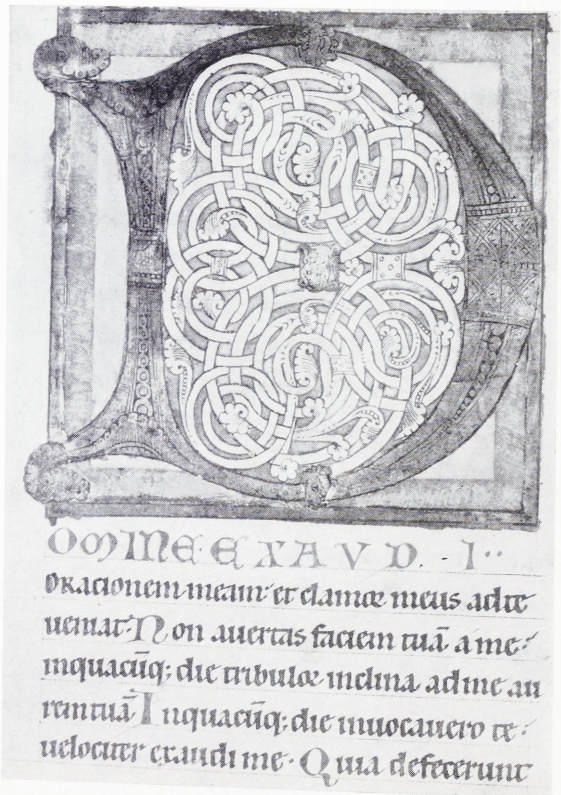 D
OMINE·EXAVD. I··
oracionem meam et clamor meus adte
ueniat· Non auertas faciem tuā a me·
inquacūq; die tribulor inclina adme au
rem tuā Inquacūq; die inuocauero te·
uelociter exaudi me· Quia defecerunt